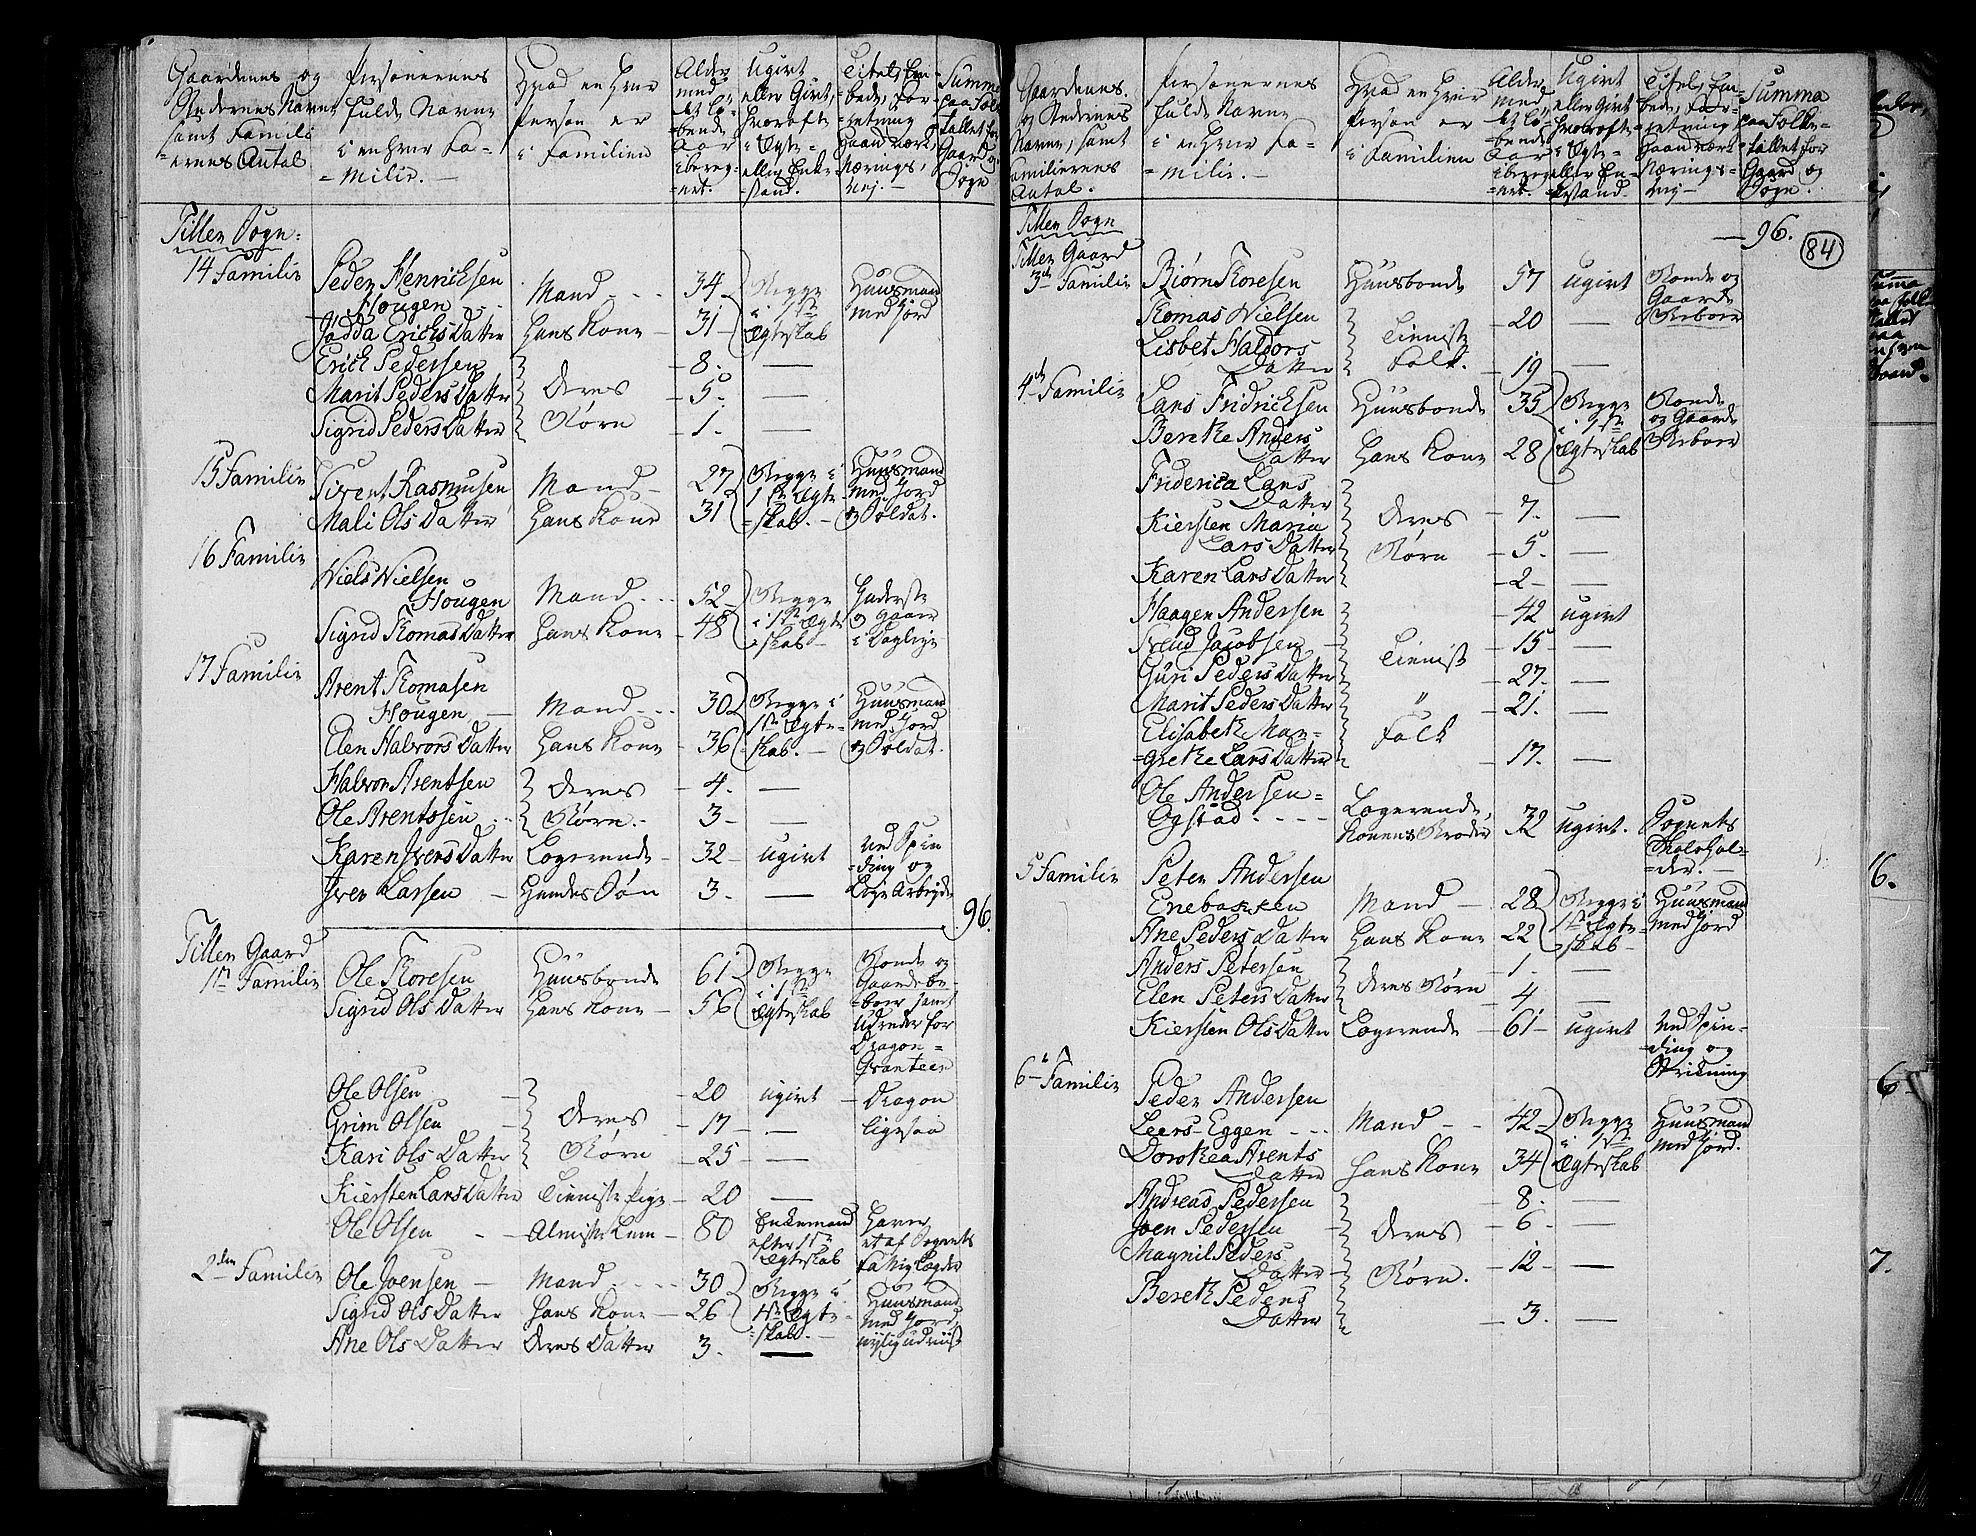 Gaardenes og
Stedernes Navne
samt Famili
=ernes Antal
Personernes
fulde Navne
i en hver Fa-
=milie.
Hvad en hver
Person er
i Familien
Alder
med
det lø-
bende
Aar
ibereg-
=net.
Ugivt
eller Givt,
hvorofte
i Ægte-
eller Enke-
stand.
Titel, Em-
bede, For-
retning
Haandværk,
Nærings-
vej.
Summa
paa Folke
tallet for
Gaard og
Sogn
Tiller Sogn:
14 Familie
Peder Henrichsen
Hougen
Mand 34
Begge
i 1ste
Ægteskab
Huusmand
med Jord
Jodda Erichs Datter Hans Kone 31
Erich Pedersen 8.
Marit Peders Datter Deres 5.
Sigrid Peders Datter Børn 1.
15 Familie
Sivent Rasmusen Mand 27
Begge i
1ste Ægte-
=skab.
Huusmand
med Jord
og Soldat.
Mali Ols Datter Hans Kone 31
16 Familie
Niels Nielsen
Hougen Mand 52
Begge
i 1ste Ægte
=skab
Inderste
og gaaer
i Dagleje
Sigrid Tomas Datter Hans Kone 48
17 Familie
Arent Tomasen
Hougen Mand 30
Begge i
1ste Ægte-
skab.
Huusmand
med Jord
og Soldat.
Elen Halvors Datter Hans Kone 36
Halvor Arentsen Deres 4.
Ole Arentssen Børn. 3
Karen Ivers Datter Logerende 32 ugivt
Ved Spin
=ding og
Leje Arbejde
Iver Larsen Hendes Søn 3.
96.
Tiller Gaard
1te Familie
Ole Toresen Huusbonde 61
Begge
i 1ste
Ægteskab
Bonde og
Gaardebe-
boer samt
Udreder for
Dragon-
Qvarteer
Sigrid Ols Datter Hans Kone 56
Ole Olsen 20 ugivt Dragon
Grim Olsen Deres 17 ligesaa
Kari Ols Datter Børn 25
Kiersten Lars Datter Tieniste Pige 20
Ole Olsen Almisse Lem 80
Enkemand
efter 1ste
Ægteskab
Haver
et af Sognets
Fattig Lægder
2den Familie
Ole Joensen Mand 30
Begge i
1ste Ægte-
skab.
Huusmand
med Jord,
nylig udviist
Sigrid Ols Datter Hans Kone 26
Ane Ols Datter Deres Datter 3.
Gaardenes
og Stedernes
Navne, samt
Familiernes
Antal.
Personernes
fulde Navne
i en hver Fa-
=milie.
Hvad en hver
Person er
i Familien
Alder
med
det lø-
bende
Aar
ibereg
=net.
Ugivt
eller Givt
hvorofte
i Ægte-
eller En-
kestand.
Titel, Em-
bede, For-
retning
Haandværk
Nærings-
vej
Summa
paa Folke-
tallet for
Gaard og
Sogn.
Tiller Sogn
96.
84
Tiller Gaard
3de Familie
Biørn Toresen Huusbonde 57 ugivt
Bonde og
Gaard
Beboer
Tomas Nielsen Tieniste 20
Lisbet Haldors
Datter Folk. 19
4de Familie
Lars Fridrichsen Huusbonde 35
Begge
i 1ste
Ægteskab
Bonde
og Gaard
Beboer
Berette Anders
Datter Hans Kone 28
Friderica Lars
Datter Deres 7.
Kiersten Maria
Lars Datter Børn 5.
Karen Lars Datter 2
Haagen Andersen 42 ugivt
Svend Jacobsen Tieniste 15
Guri Peders Datter 27
Marit Peders Datter " 21.
Elisabeth Mar-
=grethe Lars Datter Folk 17.
Ole Andersen=
Ogstad
Logerende,
Konens Broder 32 ugivt.
Sognets
Skolehol-
=der.
5 Familie
Peter Andersen
Enebakken Mand 28
Begge i
1ste Ægte-
skab
Huusmand
med Jord
Ane Peders Datter Hans Kone 22
Anders Petersen Deres Børn 1.
Elen Peters Datter 4
Kiersten Ols Datter Logerende 61 ugivt
Ved Spin-
ding og
Strikning
6te Familie
Peder Andersen
Leers-Eggen Mand 42
Begge
i 1ste
Ægteskab
Huusmand
med Jord.
Dorothea Arents
Datter Hans Kone 34
Andreas Pedersen 8.
Joen Pedersen Deres 6
Magnil Peders
Datter Børn. 12
Bereth Peders
Datter 3.
6.
6
7.